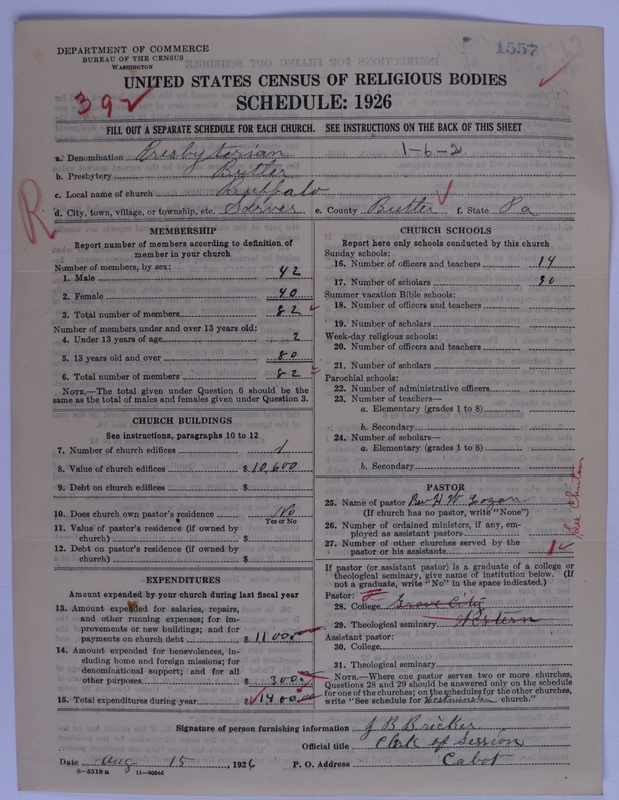 1557
DEPARTMENT OF COMMERCE
BUREAU OF THE CENSUS
WASHINGTON
UNITED STATES CENSUS OF RELIGIOUS BODIES
392
SCHEDULE: 1926
FILL OUT A SEPARATE SCHEDULE FOR EACH CHURCH. SEE INSTRUCTIONS ON THE BACK OF THIS SHEET
a. Denomination Presbyterian 1-6-2
b. Presbytery Butler
c. Local name of church Buffalo
R
d. City, town, village, or township, etc. Sarver e. County Butler f. State Pa
MEMBERSHIP
Report number of members according to definition of
member in your church
Number of members, by sex:
1. Male 42
2. Female 40
3. Total number of members 82
Number of members under and over 13 years old:
4. Under 13 years of age 2
5. 13 years old and over 80
6. Total number of members 82
NOTE.—The total given under Question 6 should be the
same as the total of males and females given under Question 3.
CHURCH BUILDINGS
See instructions, paragraphs 10 to 12
7. Number of church edifices 1
8. Value of church edifices $10,600
9. Debt on church edifices $
10. Does church own pastor's residence No
Yes or No
11. Value of pastor's residence (if owned by
church) $
12. Debt on pastor's residence (if owned by
church) $
EXPENDITURES
Amount expended by your church during last fiscal year
13. Amount expended for salaries, repairs,
and other running expenses; for im-
provements or new buildings; and for
payments on church debt $1100
14. Amount expended for benevolences, in-
cluding home and foreign missions; for
denominational support; and for all
other purposes $300
15. Total expenditures during year $1400
CHURCH SCHOOLS
Report here only schools conducted by this church
Sunday schools:
16. Number of officers and teachers 14
17. Number of scholars 90
Summer vacation Bible schools:
18. Number of officers and teachers
19. Number of scholars
Week-day religious schools:
20. Number of officers and teachers
21. Number of scholars
Parochial schools:
22. Number of administrative officers
23. Number of teachers—
a. Elementary (grades 1 to 8)
b. Secondary
24. Number of scholars—
a. Elementary (grades 1 to 8)
b. Secondary
PASTOR
25. Name of pastor Rev H W Logan
(If church has no pastor, write "None")
26. Number of ordained ministers, if any, em-
ployed as assistant pastors
27. Number of other churches served by the
pastor or his assistants 1
See
If pastor (or assistant pastor) is a graduate of a college or
theological seminary, give name of institution below. (If
not a graduate, write "No" in the space indicated.)
Pastor:
28. College Grove City
29. Theological seminary Western
Assistant pastor:
30. College
31. Theological seminary
NOTE.—Where one pastor serves two or more churches,
Questions 28 and 29 should be answered only on the schedule
for one of the churches; on the schedules for the other churches,
write "See schedule for Westminster church."
Signature of person furnishing information J B Bricker
Official title Clerk of Session
Date Aug 15, 1926 P. O. Address Cabot
8-5518 a